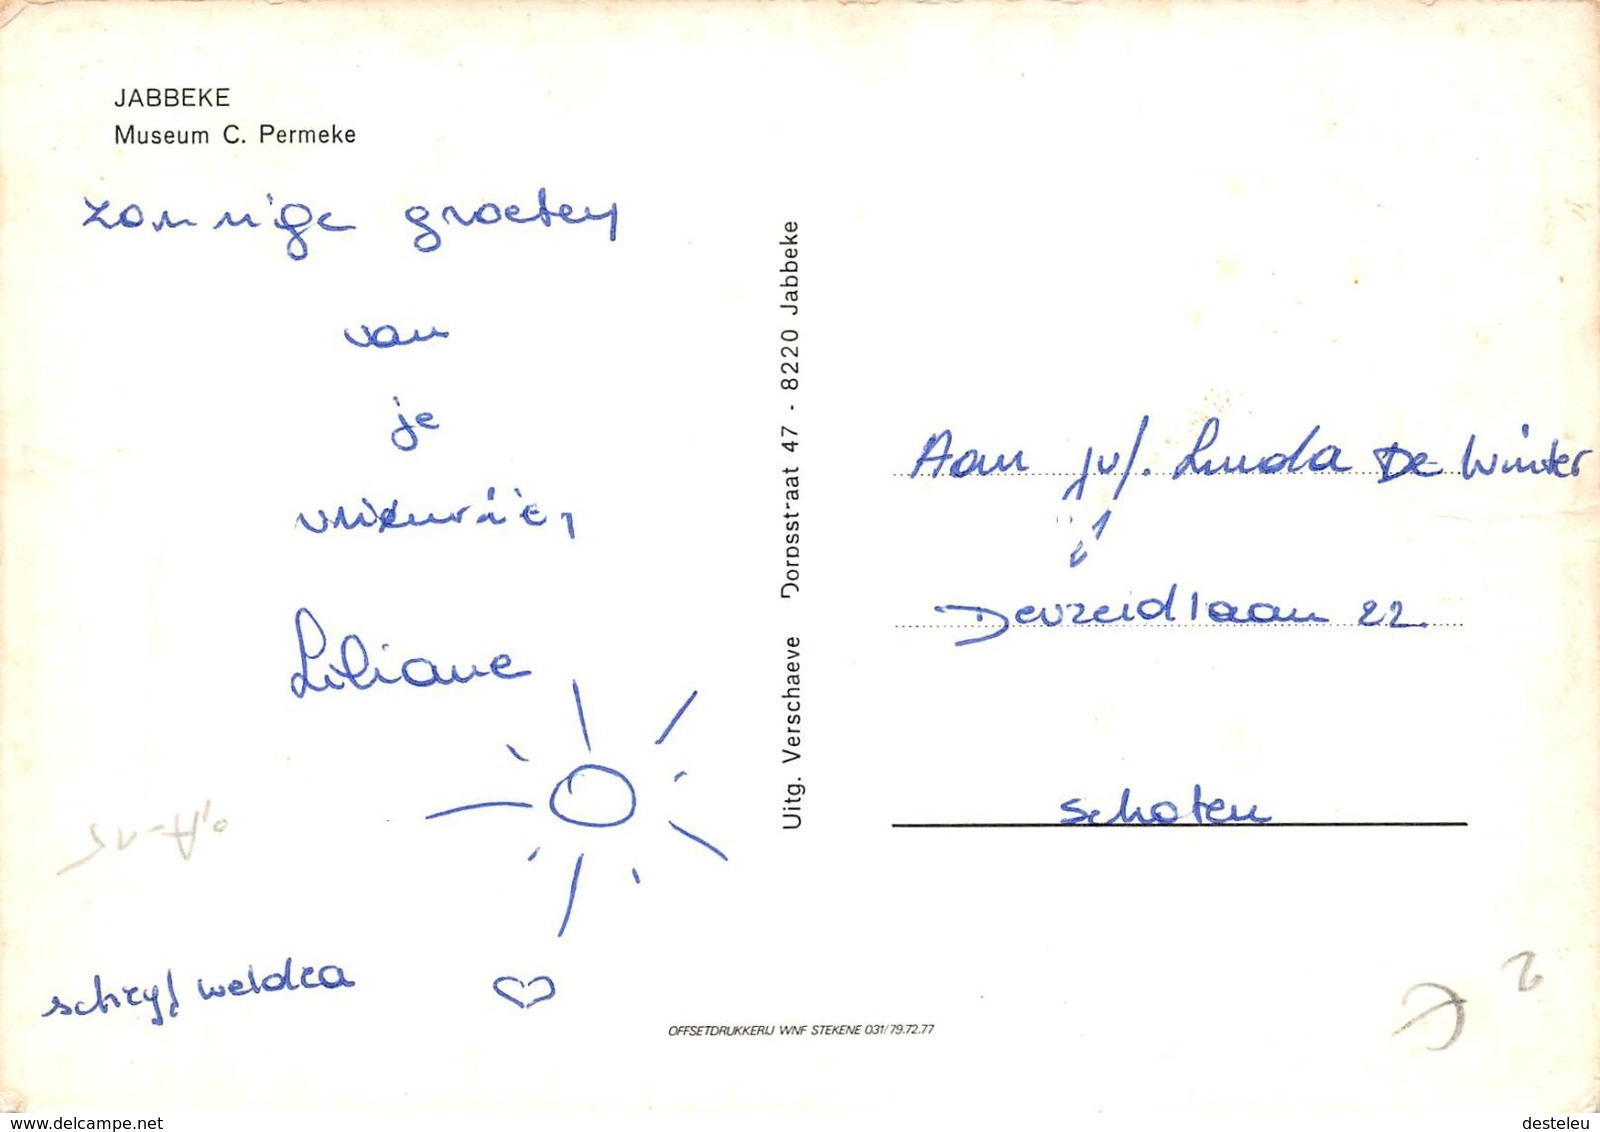 JABBEKE
Museum C. Permeke
zonnige groeten
van
je
Liliane
schryf weldra
Uitg. Verschaeve Dorpsstraat 47 - 8220 Jabbeke
Aan juf. Linda De Winter
Deuzeidlaan 22.
Schoten
OFFSETDRUKKERIJ WNF STEKENE 031/79.72.77
www.delcampe.net
desteleu